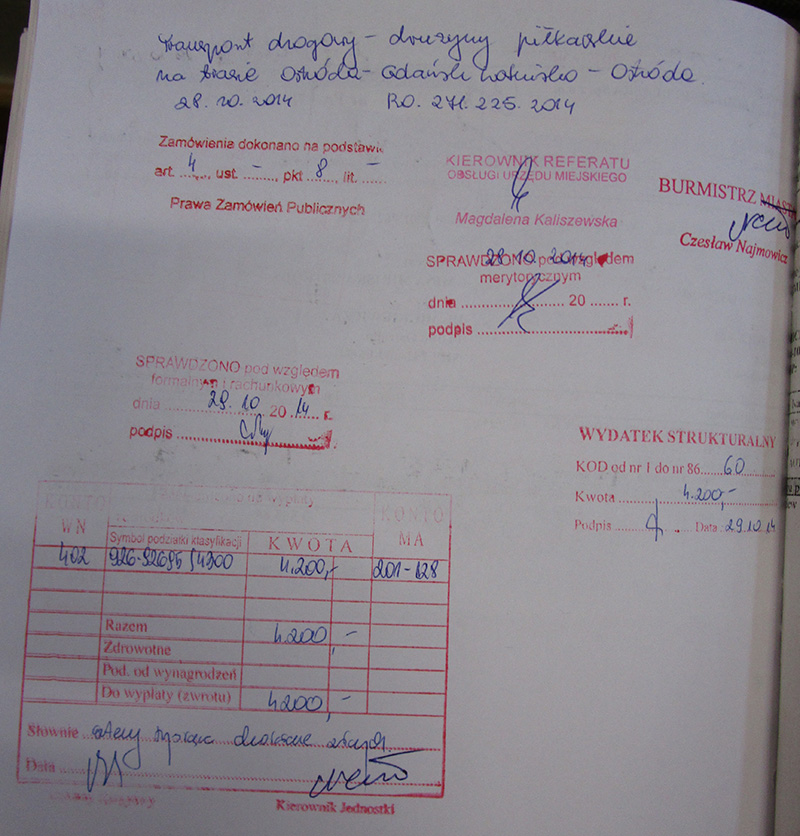 Transport drogowy - drużyny piłkarskie
na trasie Ostróda - Gdańsk lotnisko - Ostróda.
28.10.2014 RO. 271.225.2014
Zamówienia dokonano na podstawie
art. 4 , ust. - , pkt 8 , lit. -
Prawa Zamówień Publicznych
KIEROWNIK REFERATU
OBSŁUGI URZĘDU MIEJSKIEGO
Magdalena Kaliszewska
BURMISTRZ MIASTA
Czesław Najmowicz
SPRAWDZONO pod względem
merytorycznym
28.10.2014
dnia .................... 20 ....... r.
podpis ....................
SPRAWDZONO pod względem
formalnym i rachunkowym
dnia 29.10 20 14 r.
podpis ....................
WYDATEK STRUKTURALNY
KOD od nr 1 do nr 86 60
Kwota 4.200,-
Podpis .......... Data: 29.10.14
KONTO WN
Symbol podziałki klasyfikacji
KWOTA
KONTO MA
402 926-92695 §4300 4.200,- 201-128
Razem 4200,-
Zdrowotne
Pod. od wynagrodzeń
Do wypłaty (zwrotu) 4200,-
Słownie cztery tysiące dwieście złotych
Data
Kierownik Jednostki